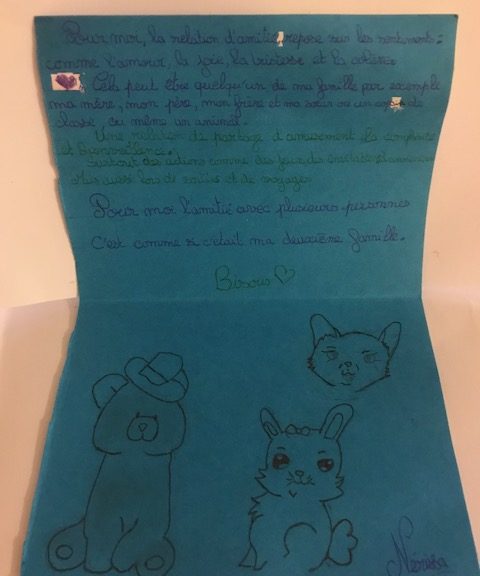 Pour moi, la relation d'amitié repose sur les sentiments :
comme l'amour, la joie, la tristesse et la colère.
Cela peut être quelqu'un de ma famille par exemple
ma mère, mon père, mon frère et ma sœur ou un de
classe, ou même un animal.
Une relation de partage d'amusement la complicité
et bienveillance.
Surtout des actions comme des jeux de
Mais aussi lors de sorties et de voyages
Pour moi l'amitié avec plusieurs personnes
C'est comme si c'était ma deuxième famille.
Bisous